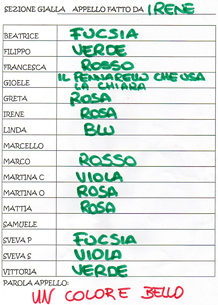 SEZIONE GIALLA APPELLO FATTO DA IRENE
BEATRICE FUCSIA
FILIPPO VERDE
FRANCESCA ROSSO
GIOELE IL PENNARELLO CHE USA
LA CHIARA
GRETA ROSA
IRENE ROSA
LINDA BLU
MARCELLO
MARCO ROSSO
MARTINA C VIOLA
MARTINA O ROSA
MATTIA ROSA
SAMUELE
SVEVA P FUCSIA
SVEVA S VIOLA
VITTORIA VERDE
PAROLA APPELLO:
UN COLORE BELLO